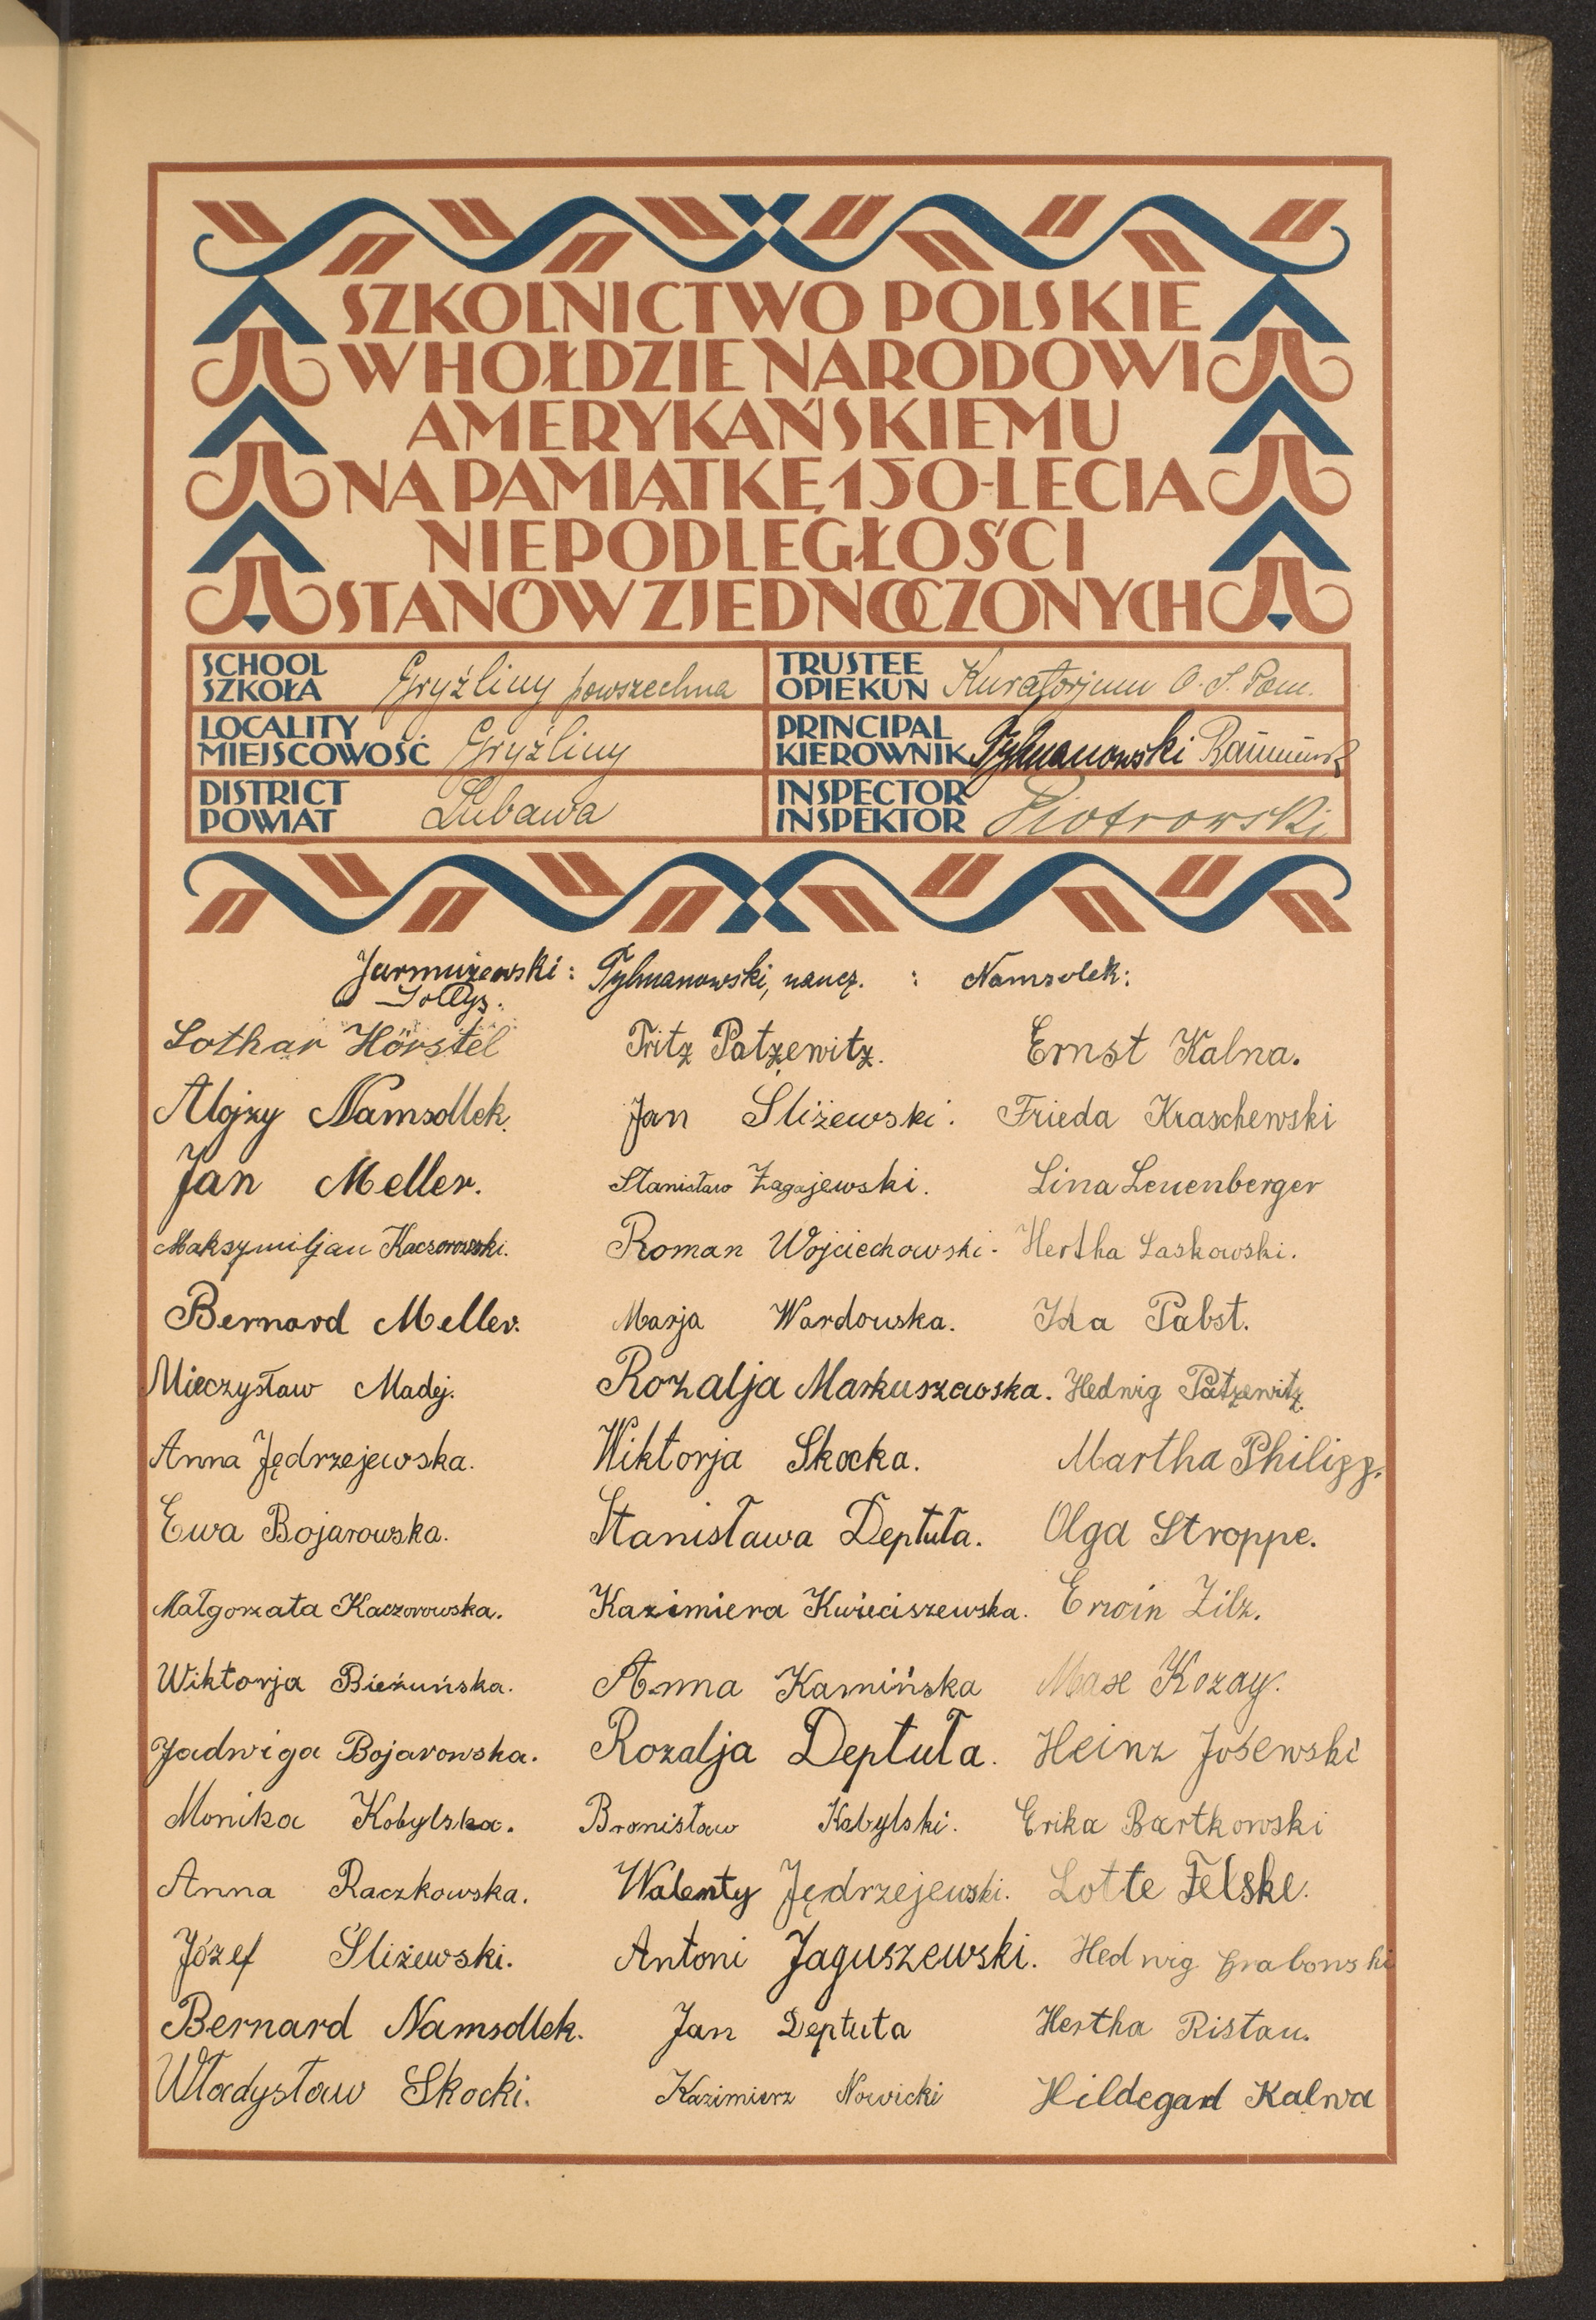 SZKOLNICTWO POLSKIE
W HOŁDZIE NARODOWI
AMERYKAŃSKIEMU
NA PAMIĄTKĘ 150-LECIA
NIEPODLEGŁOŚCI
STANÓW ZJEDNOCZONYCH
SCHOOL
SZKOŁA Gryźliny powszechna
TRUSTEE
OPIEKUN Kuratorjum O. S. Pom.
LOCALITY
MIEJSCOWOŚĆ Gryźliny
PRINCIPAL
KIEROWNIK Tylmanowski
DISTRICT
POWIAT Lubawa
INSPECTOR
INSPEKTOR Piotrowski
Jarmużewski: Tylmanowski, naucz. : Namsolek:
Sołtys.
Lothar Hörstel Fritz Patzewitz. Ernst Kalna.
Alojzy Namsollek. Jan Śliżewski. Frieda Kraschewski
Jan Meller. Stanisław Zagajewski. Lina Leuenberger
Maksymiljan Kaczorowski. Roman Wojciechowski. Hertha Laskowski.
Bernard Meller. Marja Wardowska. Ida Pabst.
Mieczysław Madej. Rozalja Markuszewska. Hedwig Patzewitz.
Anna Jędrzejewska. Wiktorja Skocka. Martha Philipp.
Ewa Bojarowska. Stanisława Deptuła. Olga Stroppe.
Małgorzata Kaczorowska. Kazimiera Kwieciszewska. Erwin Zilz.
Wiktorja Bieżuńska. Anna Kamińska Kozay.
Jadwiga Bojarowska. Rozalja Deptuła. Heinz Josewski
Monika Kobylska. Bronisław Kobylski. Erika Bartkowski
Anna Raczkowska. Walenty Jędrzejewski. Lotte Felske.
Józef Śliżewski. Antoni Jaguszewski. Hedwig Grabowski
Bernard Namsollek. Jan Deptuła Hertha Ristau.
Władysław Skocki. Kazimierz Nowicki Hildegard Kalwa